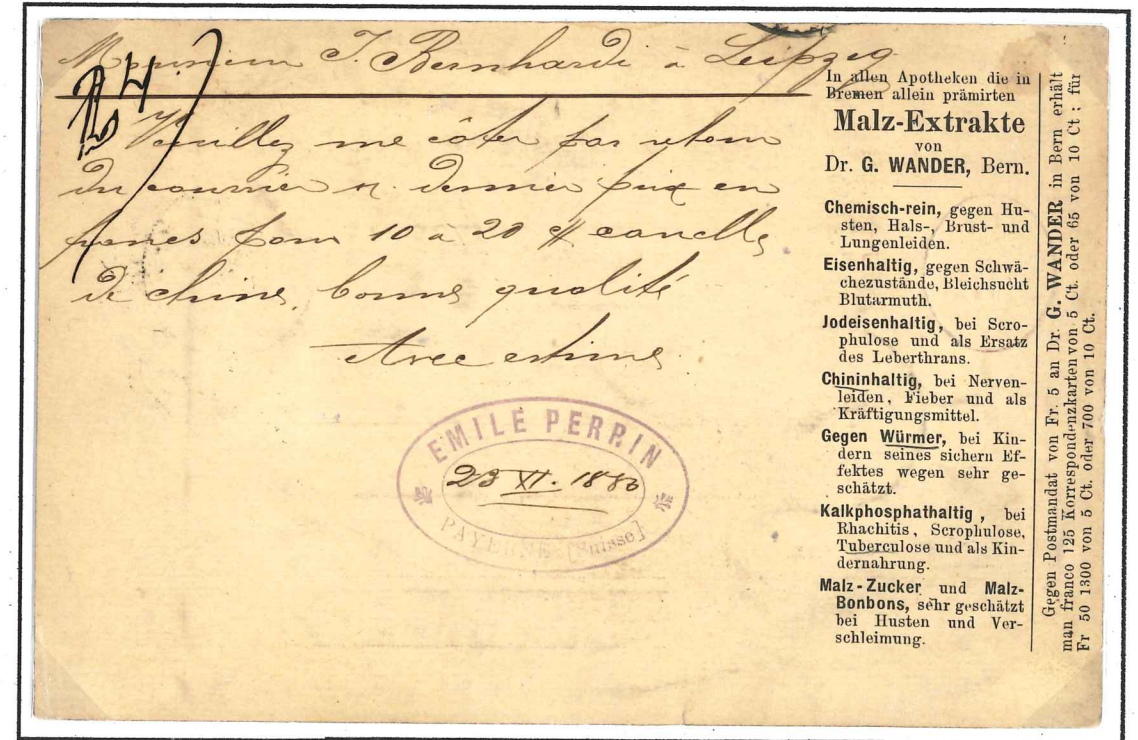 Monsieur J. Bernhardi à Leipzig
Veuillez me côter par retour
du courrier v. dernier prix en
francs pour 10 a 20 canelle
de chine, bonne qualité
Avec estime
EMILE PERRIN
23 XI. 1880
PAYERNE [Suisse]
In allen Apotheken die in
Bremen allein prämirten
Malz-Extrakte
von
Dr. G. WANDER, Bern.
Chemisch-rein, gegen Hu-
sten, Hals-, Brust- und
Lungenleiden.
Eisenhaltig, gegen Schwä-
chezustände, Bleichsucht
Blutarmuth.
Jodeisenhaltig, bei Scro-
phulose und als Ersatz
des Leberthrans.
Chininhaltig, bei Nerven-
leiden, Fieber und als
Kräftigungsmittel.
Gegen Würmer, bei Kin-
dern seines sichern Ef-
fektes wegen sehr ge-
schätzt.
Kalkphosphathaltig, bei
Rhachitis, Scrophulose,
Tuberculose und als Kin-
dernahrung.
Malz-Zucker und Malz-
Bonbons, sehr geschätzt
bei Husten und Ver-
schleimung.
Gegen Postmandat von Fr. 5 an Dr. G. WANDER in Bern erhält
man franco 125 Korrespondenzkarten von 5 Ct. oder 65 von 10 Ct; für
Fr 50 1300 von 5 Ct. oder 700 von 10 Ct.